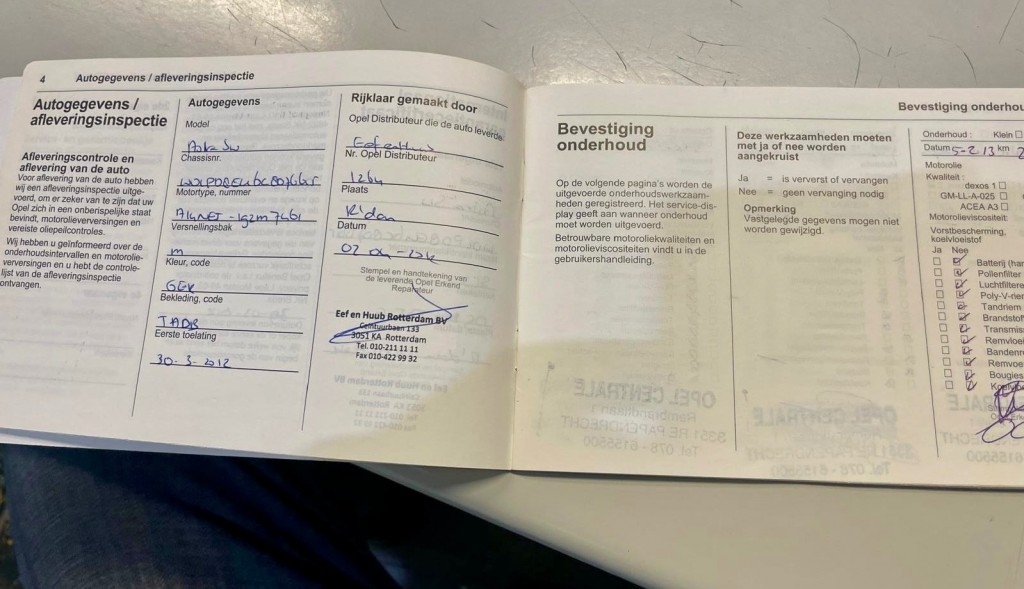 4 Autogegevens / afleveringsinspectie
Autogegevens /
afleveringsinspectie
Afleveringscontrole en
aflevering van de auto
Voor aflevering van de auto hebben
wij een afleveringsinspectie uitge-
voerd, om er zeker van te zijn dat uw
Opel zich in een onberispelijke staat
bevindt, motorolieverversingen en
vereiste oliepeilcontroles.
Wij hebben u geïnformeerd over de
onderhoudsintervallen en motorolie-
verversingen en u hebt de controle-
lijst van de afleveringsinspectie
ontvangen.
Autogegevens
Model
Chassisnr.
Motortype, nummer
Versnellingsbak
m
Kleur, code
GEK
Bekleding, code
Eerste toelating
30-3-2012
Rijklaar gemaakt door
Opel Distributeur die de auto leverde
Nr. Opel Distributeur
Plaats
Datum
Stempel en handtekening van
de leverende Opel Erkend
Reparateur
Eef en Huub Rotterdam BV
Ceintuurbaan 133
3051 KA Rotterdam
Tel. 010-211 11 11
Fax 010-422 99 32
Bevestiging onderhou
Bevestiging
onderhoud
Op de volgende pagina's worden de
uitgevoerde onderhoudswerkzaam-
heden geregistreerd. Het service-dis-
play geeft aan wanneer onderhoud
moet worden uitgevoerd.
Betrouwbare motoroliekwaliteiten en
motorolieviscositeiten vindt u in de
gebruikershandleiding.
Deze werkzaamheden moeten
met ja of nee worden
aangekruist
Ja = is ververst of vervangen
Nee = geen vervanging nodig
Opmerking
Vastgelegde gegevens mogen niet
worden gewijzigd.
Onderhoud : Klein
Datum 5-2 13 km 2
Motorolie
Kwaliteit :
dexos 1
GM-LL-A-025
ACEA A3
Motorolieviscositeit:
Vorstbescherming,
koelvloeistof
Ja Nee
Batterij (han
Pollenfilter
Luchtfiltere
Poly-V-rien
Tandriem
Brandstof
Transmis
Remvloei
Bandenre
Remvoe
Bougies